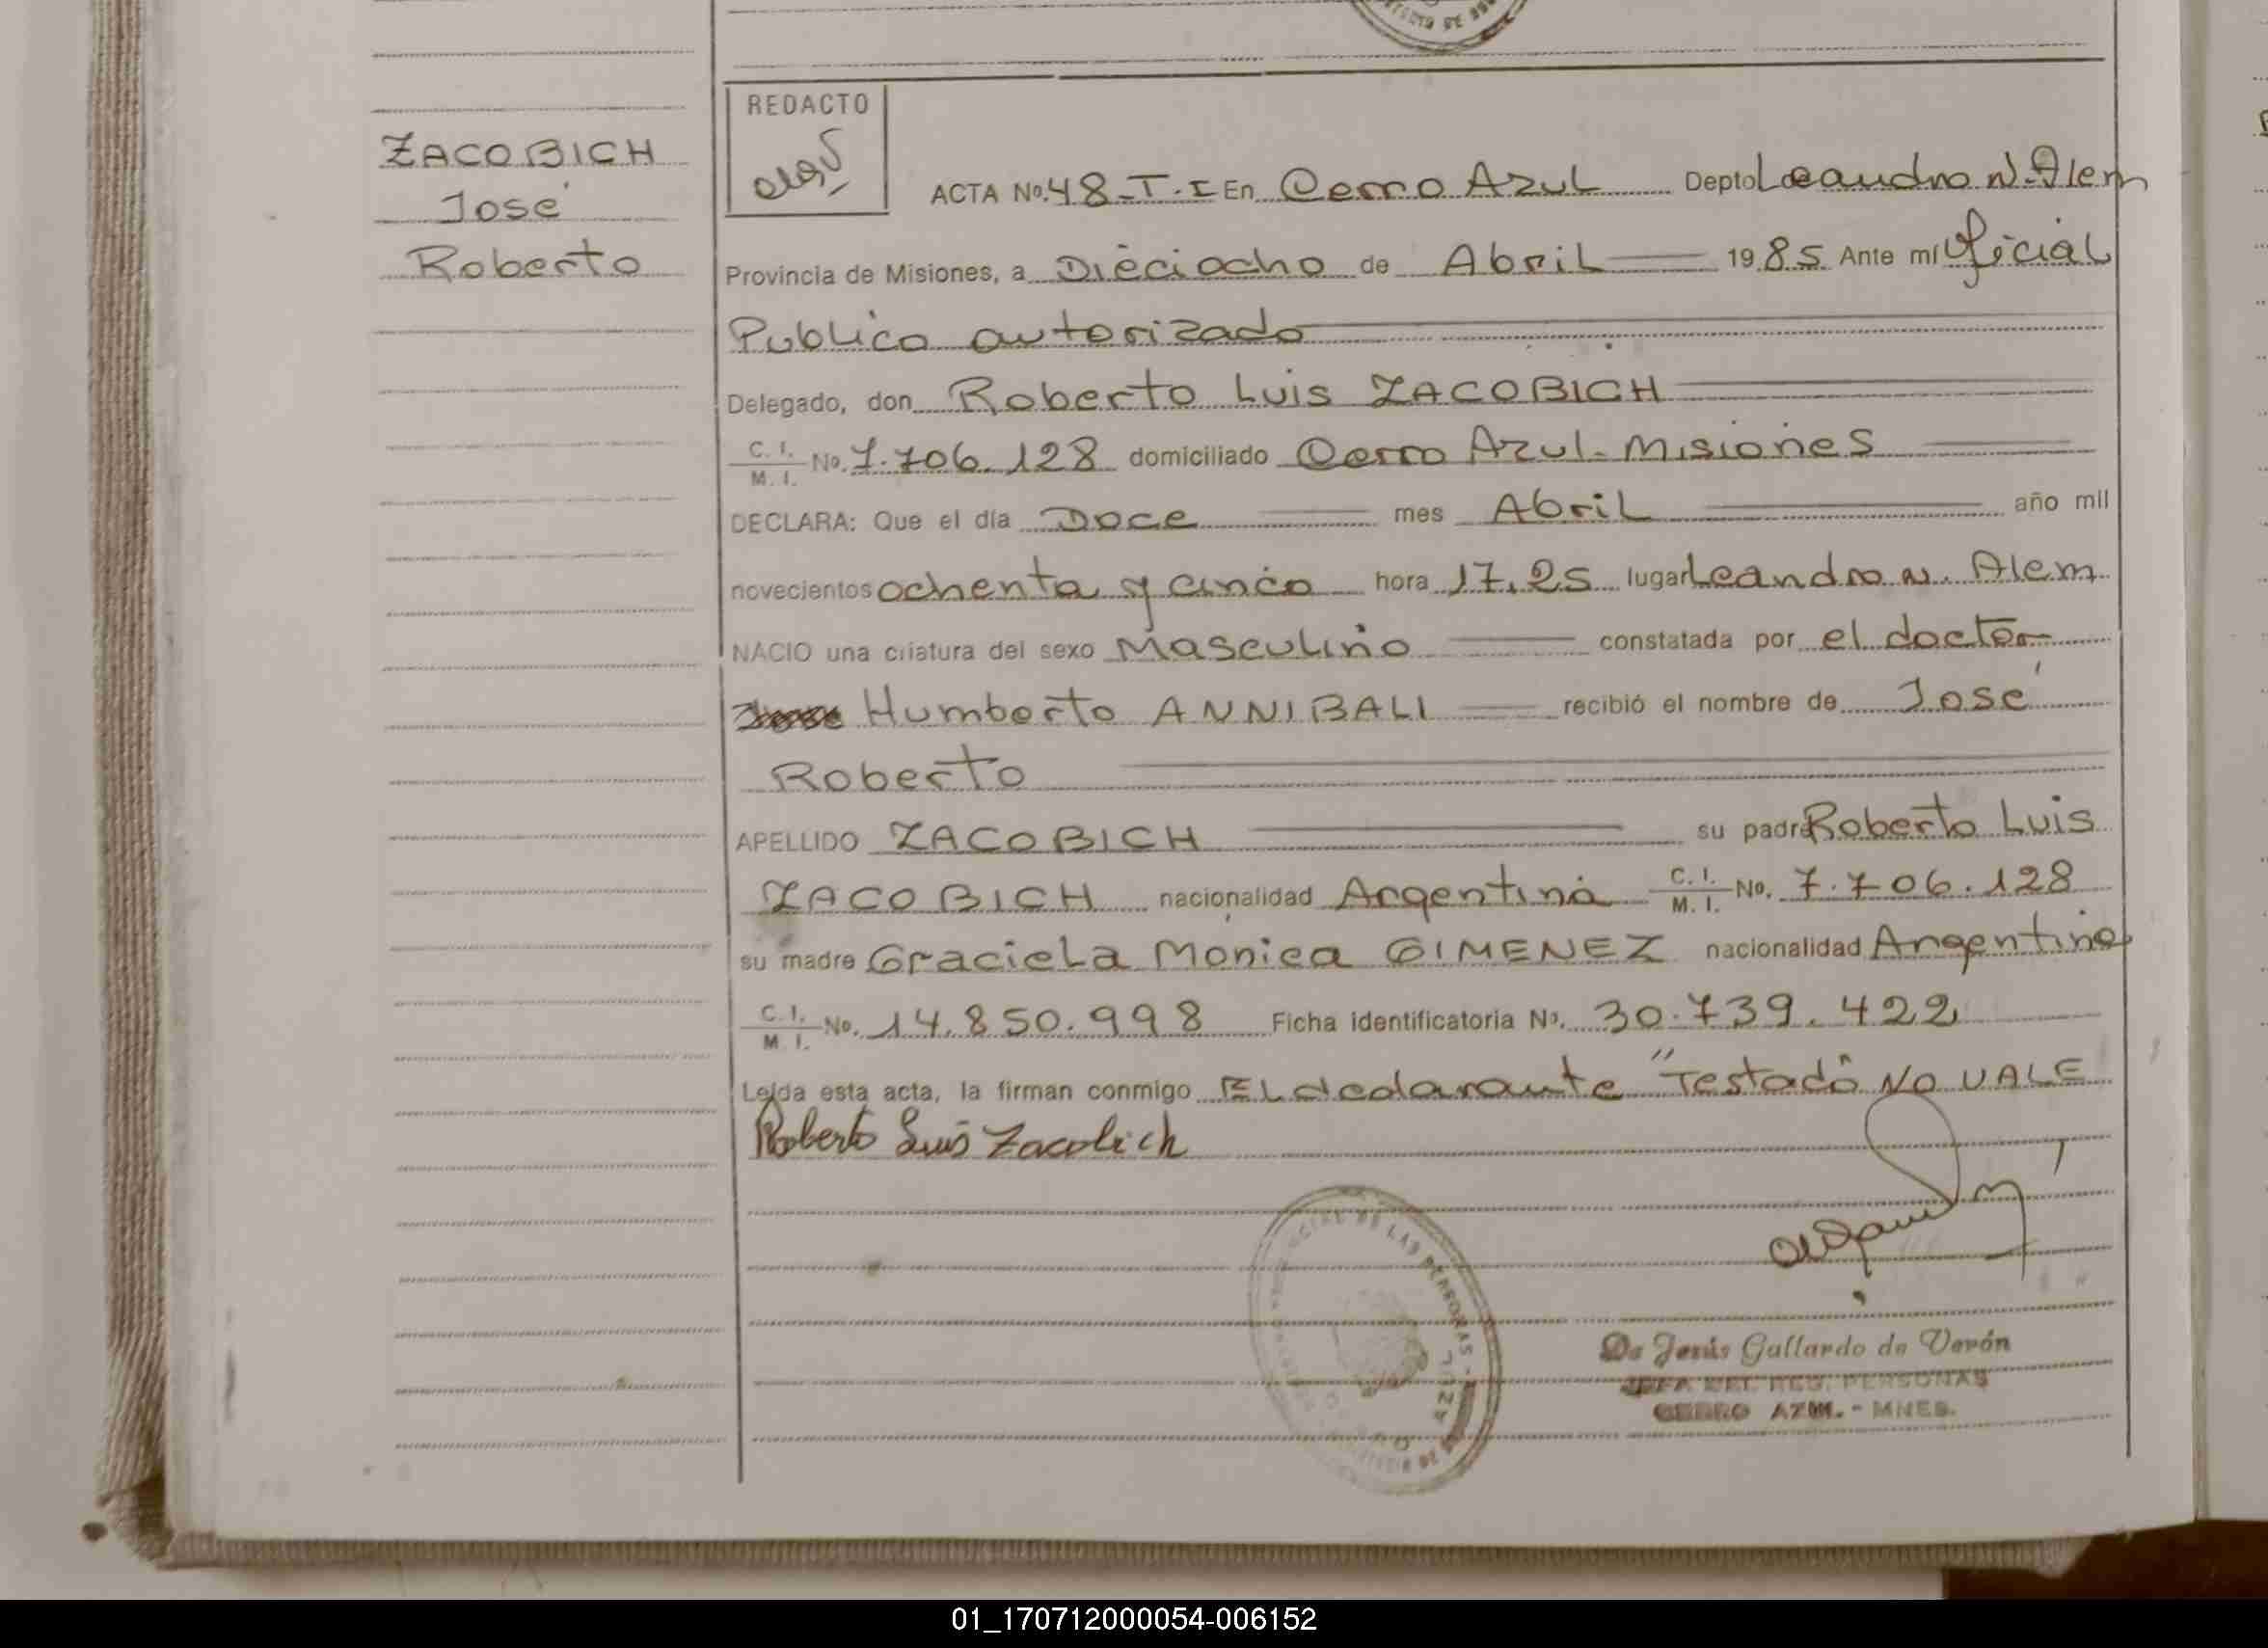 ZACOBICH
José
Roberto
REDACTO
ACTA No. 48-T.I En Cerro Azul Depto Leandro N. Alem
Provincia de Misiones, a Dieciocho de Abril 1985 Ante mí Oficial
Publico autorizado
Delegado, don Roberto Luis ZACOBICH
C. I. M. I. No. 7.706.128 domiciliado Cerro Azul-Misiones
DECLARA: Que el día Doce mes Abril año mil
novecientos ochenta y cinco hora 17,25 lugar Leandro N. Alem
NACIO una criatura del sexo Masculino constatada por el doctor
Humberto ANNIBALI recibió el nombre de José
Roberto
APELLIDO ZACOBICH su padre Roberto Luis
ZACOBICH nacionalidad Argentina C. I. M. I. No. 7.706.128
su madre Graciela Monica GIMENEZ nacionalidad Argentina
C. I. M. I. No. 14.850.998 Ficha identificatoria No. 30.739.422
Leída esta acta, la firman conmigo El declarante "Testado" NO VALE
Roberto Luis Zacobich
DE LAS PERSONAS - AZUL
De Jesús Gallardo de Verón
JEFA DEL REG. PERSONAS
CERRO AZUL. - MNES.
01_170712000054-006152